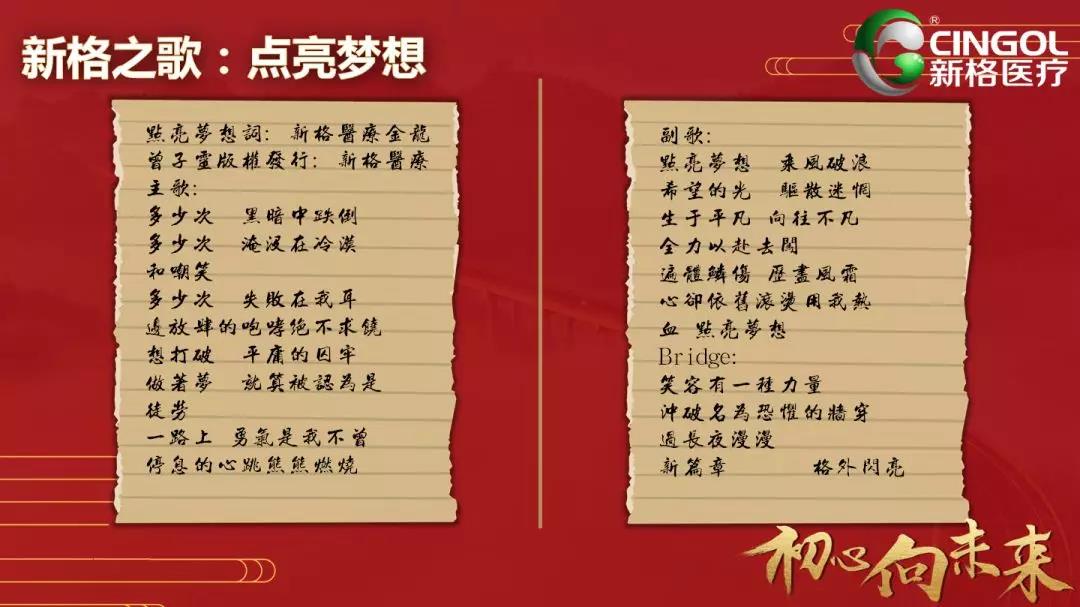 新格之歌：点亮梦想
®
CINGOL
新格医疗
點亮夢想詞： 新格醫療金龍
曾子靈版權發行： 新格醫療
主歌：
多少次 黑暗中跌倒
多少次 淹沒在冷漠
和嘲笑
多少次 失敗在我耳
邊放肆的咆哮絕不求饒
想打破 平庸的囚牢
做著夢 就算被認為是
徒勞
一路上 勇氣是我不曾
停息的心跳熊熊燃燒
副歌：
點亮夢想 乘風破浪
希望的光 驅散迷惘
生于平凡 向往不凡
全力以赴去闖
遍體鱗傷 歷盡風霜
心卻依舊滾燙用我熱
血 點亮夢想
Bridge:
笑容有一種力量
沖破名為恐懼的牆穿
過長夜漫漫
新篇章 格外閃亮
初心向未来